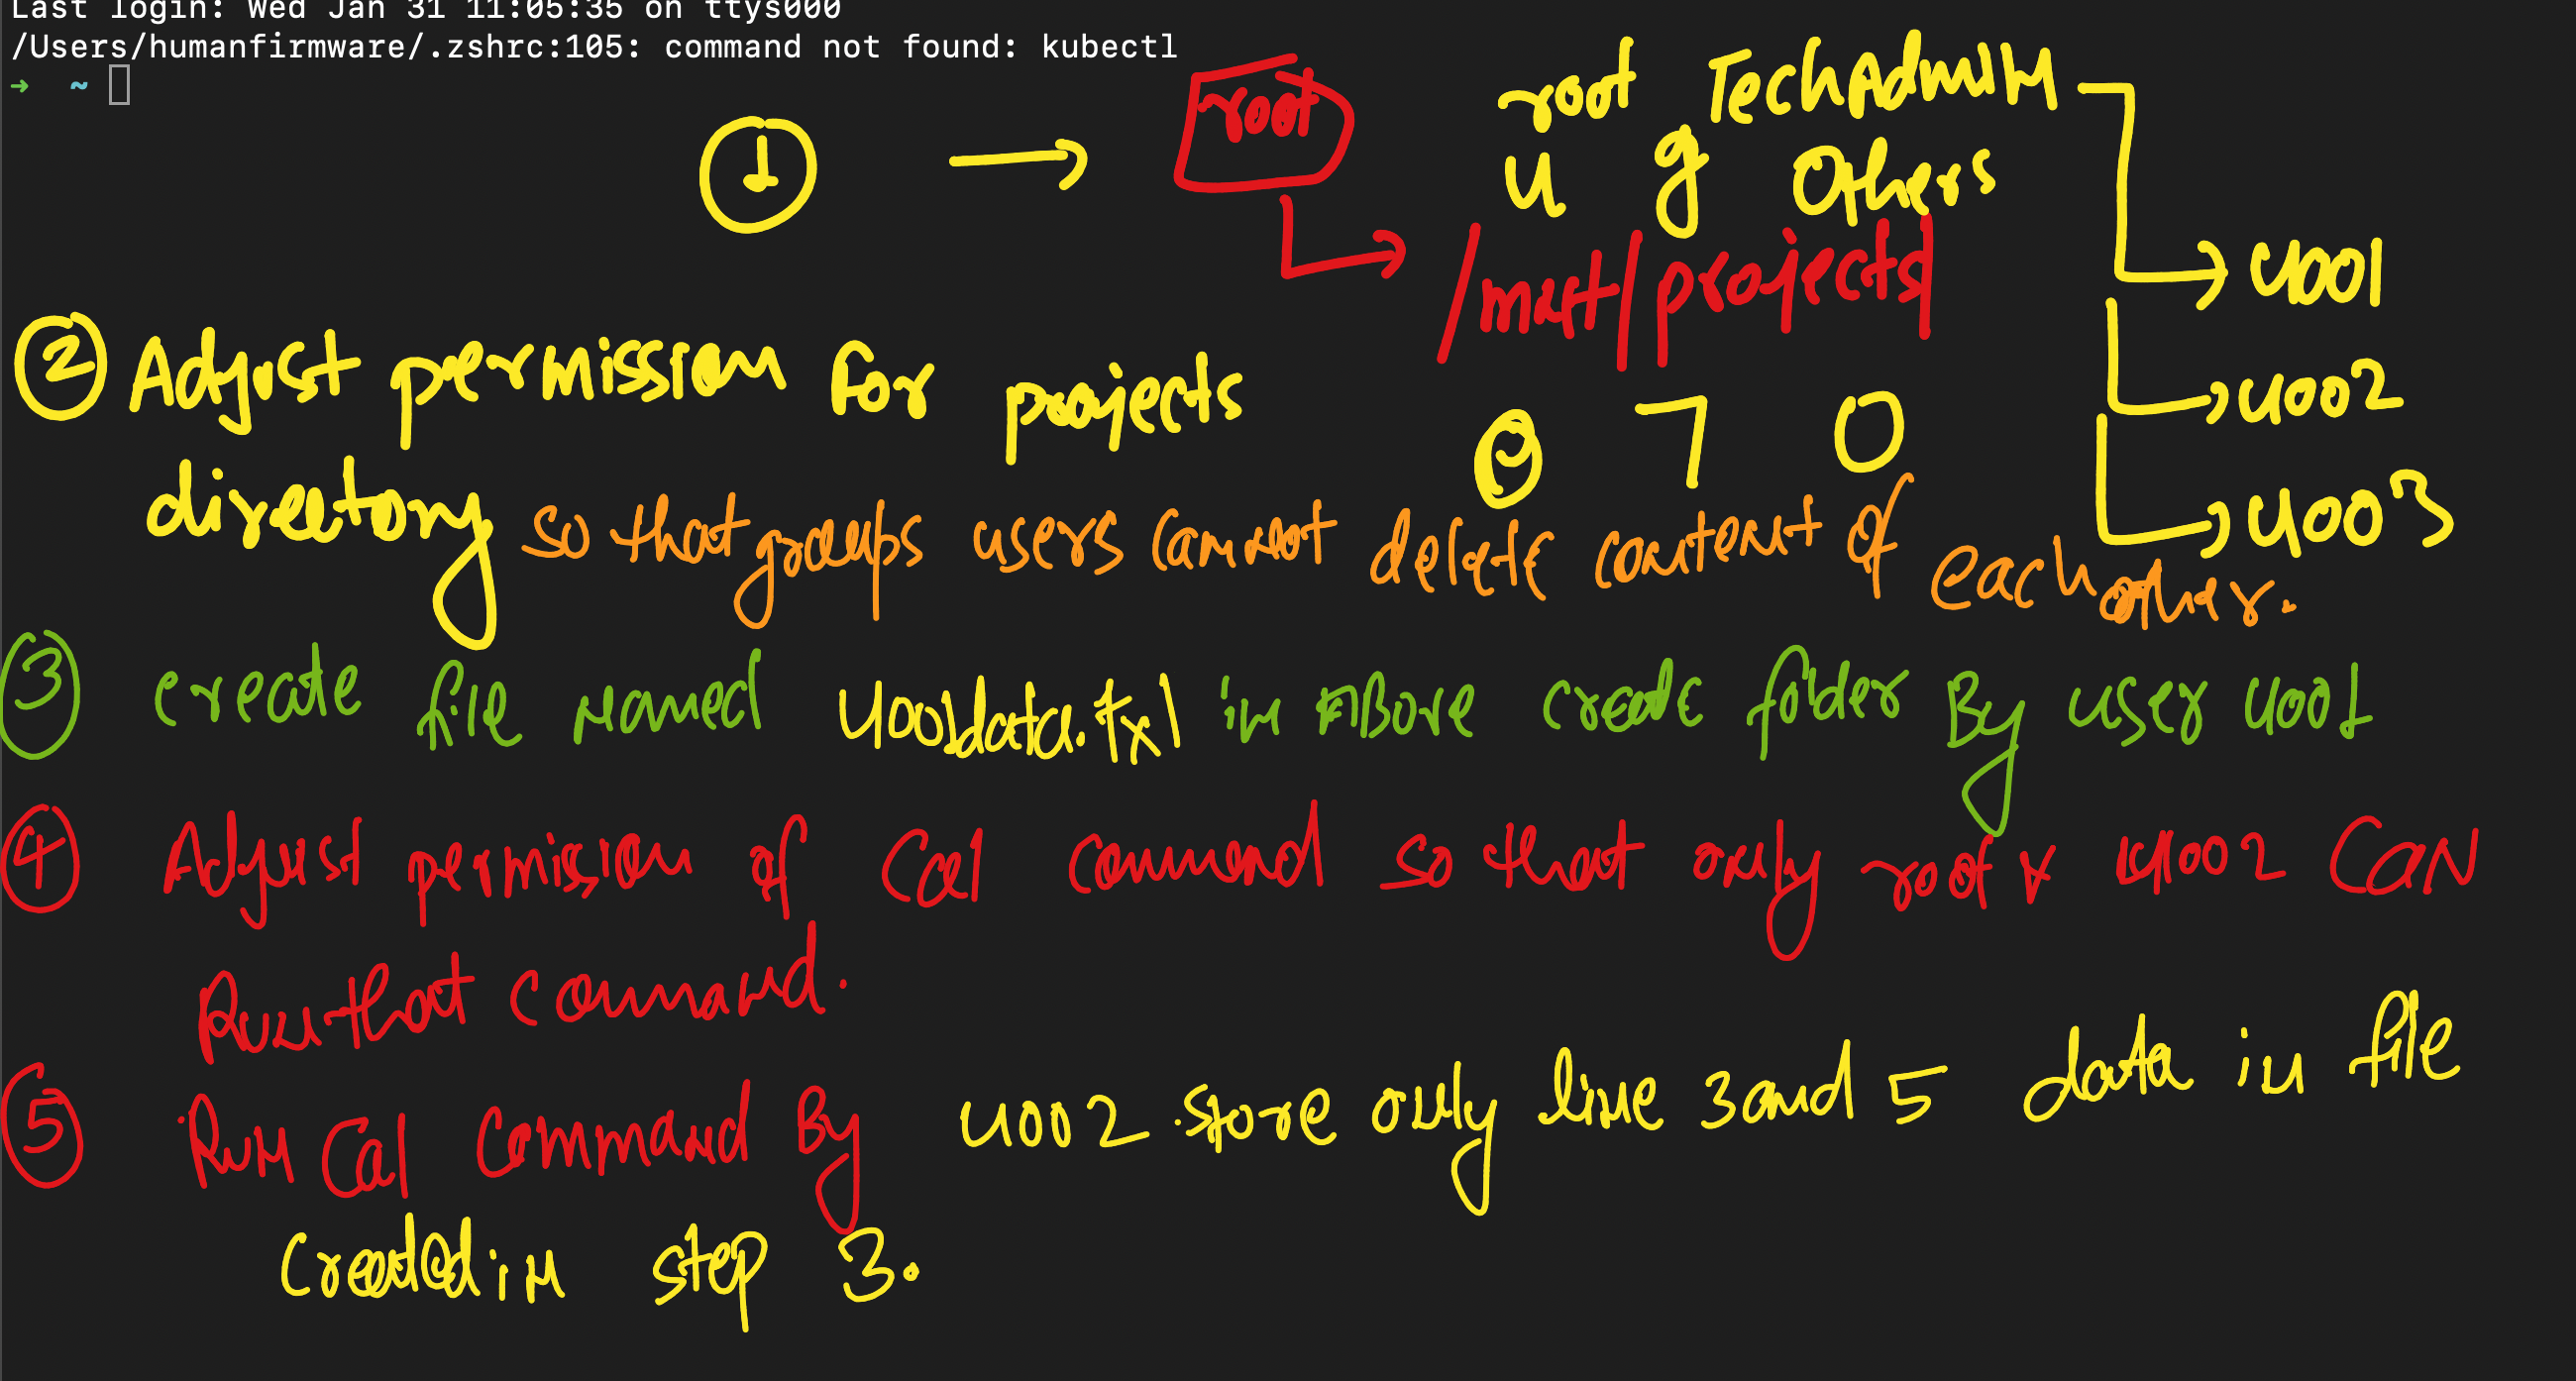 Last login: Wed Jan 31 11:05:35 on ttys000
/Users/humanfirmware/.zshrc:105: command not found: kubectl
➜ ~
1 → root root TechAdmin
u g Others
/matt/projects u001
2 Adjust permission for projects 0 7 0 u002
directory so that groups users cannot delete content of each other. u003
3 create file named u001data.txt in Above create folder By user u001
4 Adjust permission of Cal command so that only root & u002 CAN
Run that command.
5 Run Cal Command By u002 store only line 3 and 5 data in file
Created in step 3.